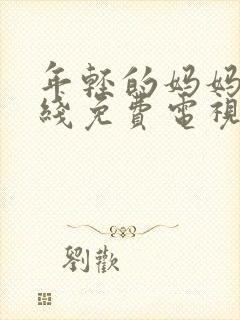 年輕的妈妈
綫免費電視
劉歡